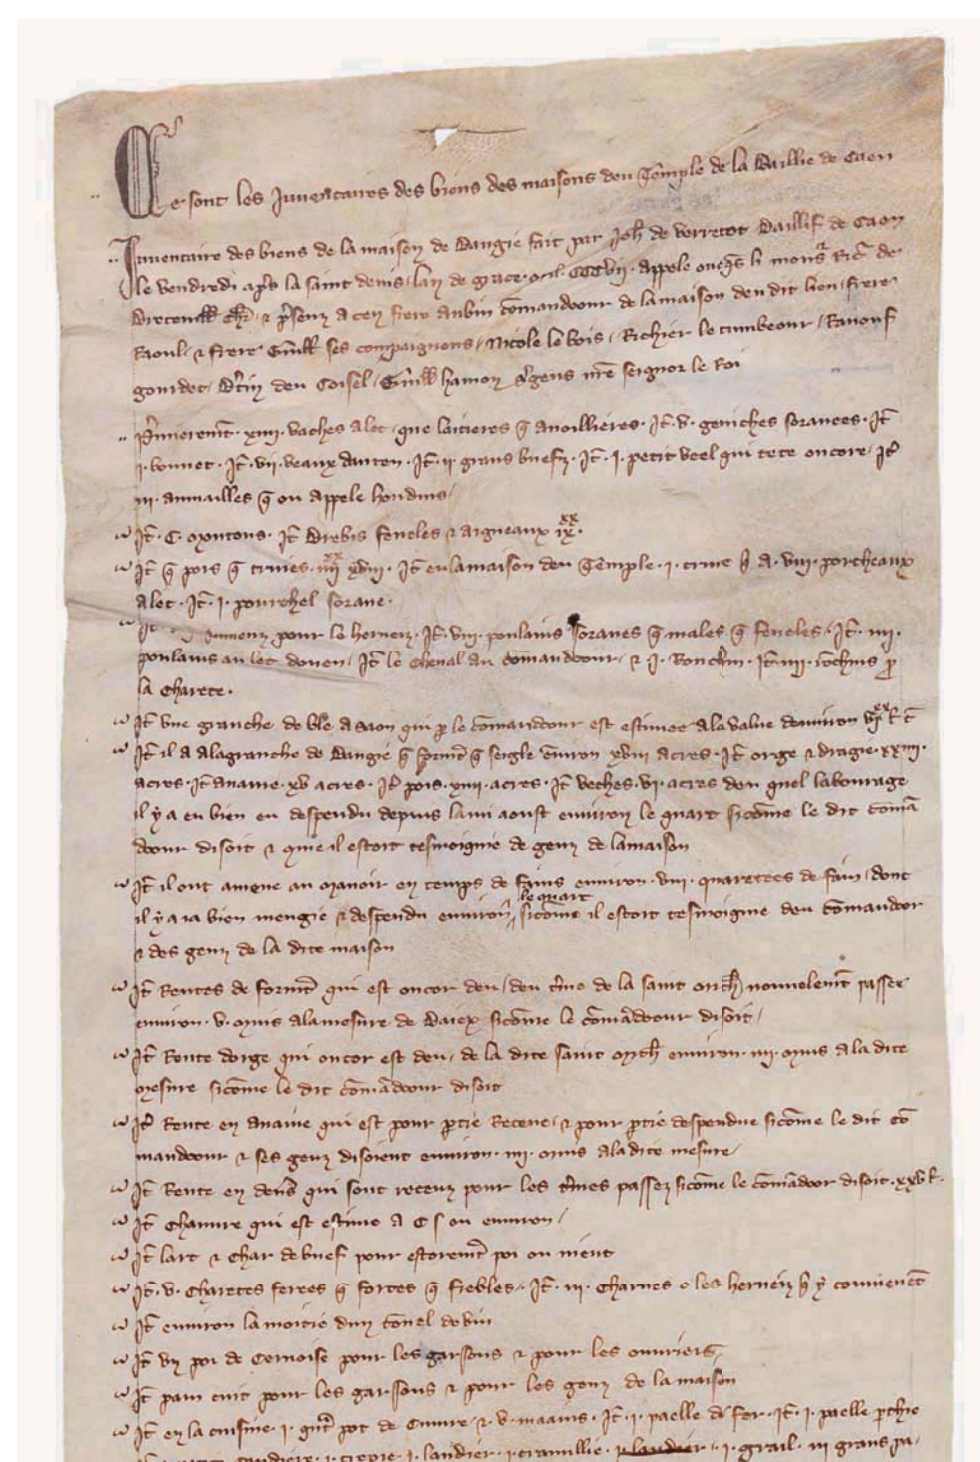 Ce sont les Inventaires des biens des maisons dou Temple de la Baillie de Caen
Inventaire des biens de la maison de Baugie fait par Joh de Verretot Baillif de Caen
le vendredi apres la saint denis lan de grace mil CCC vii appele oueques li mons Ric de
Bretouill & present a cen frere aubin comandeour de la maison deu dit lieu frere
Raoul & frere Guill ses compaignons Nicole le bois Richier le tumbeour Ranouf
gourdet Btin deu Coisel Guill hamon sgens nre seignor le Roi
Premierement xiiii vaches a let que laitieres q anoillieres It v geniches soranees It
i bouuet It vii veaux dantan It ii grans buefz It i petit veel qui tete encore It
iii aumailles q on appele hondins
It C moutons It Brebis femeles & aigneaux ix xx
It q pors q truies iiii xx xviii It en la maison deu Temple i truie q a viii porcheaux
a let It i pourchel sorane
jumenz pour le herneiz It viii poulains soranes q males q femeles It iiii
poulains au let douen It le cheval au comandeour & i Ronchin It iiii ronchins pr
la charete
It une granche de ble a Saon qui par le comandeour est estimee a la value denviron
It il a a la granche de Baugie q forment q seigle environ xviii acres It orge & dragie xxiiii
acres It avaine xv acres It pois xiiii acres It veches vi acres dou quel labourage
il y a eu bien en despendu depuis la mi aoust environ le quart sicome le dit coma
deour disoit & que il estoit tesmoignie de genz de la maison
It il ont amene au manoir en temps de fains environ viii quaretees de fain dont
le quart
il y a ia bien mengie & despendu environ sicome il estoit tesmoigne deu comandeor
& des genz de la dite maison
It Rentes de forment qui est oncor deu deu terme de la saint Mich nouvelement passee
environ v muis a la mesure de Baiex sicome le comadeour disoit
It Rente dorge qui oncor est deu de la dite saint Mich environ iiii muis a la dite
mesure sicome le dit comadeour disoit
It Rente en avaine qui est pour partie Receue & pour partie despendue sicome le dit co
mandeour & ses genz disoient environ iiii muis a la dite mesure
It Rente en deniers qui sont receuz pour les termes passez sicome le comadeor disoit xxv l
It Chanvre qui est estime a C s ou environ
It lart & char de buef pour estorement poi ou nient
It v charetes ferees q fortes q fiebles It iii charues o les herneiz q y conuienent
It environ la moitie dun tonel de vin
It un poi de cervoise pour les garssons & pour les ouvriers
It pain cuit pour les garssons & pour les genz de la maison
It en la cuisine i grant pot de cuivre & v maains It i paelle de fer It i paelle perchie
i trepie i landier i cramillie i grail iii grans pa